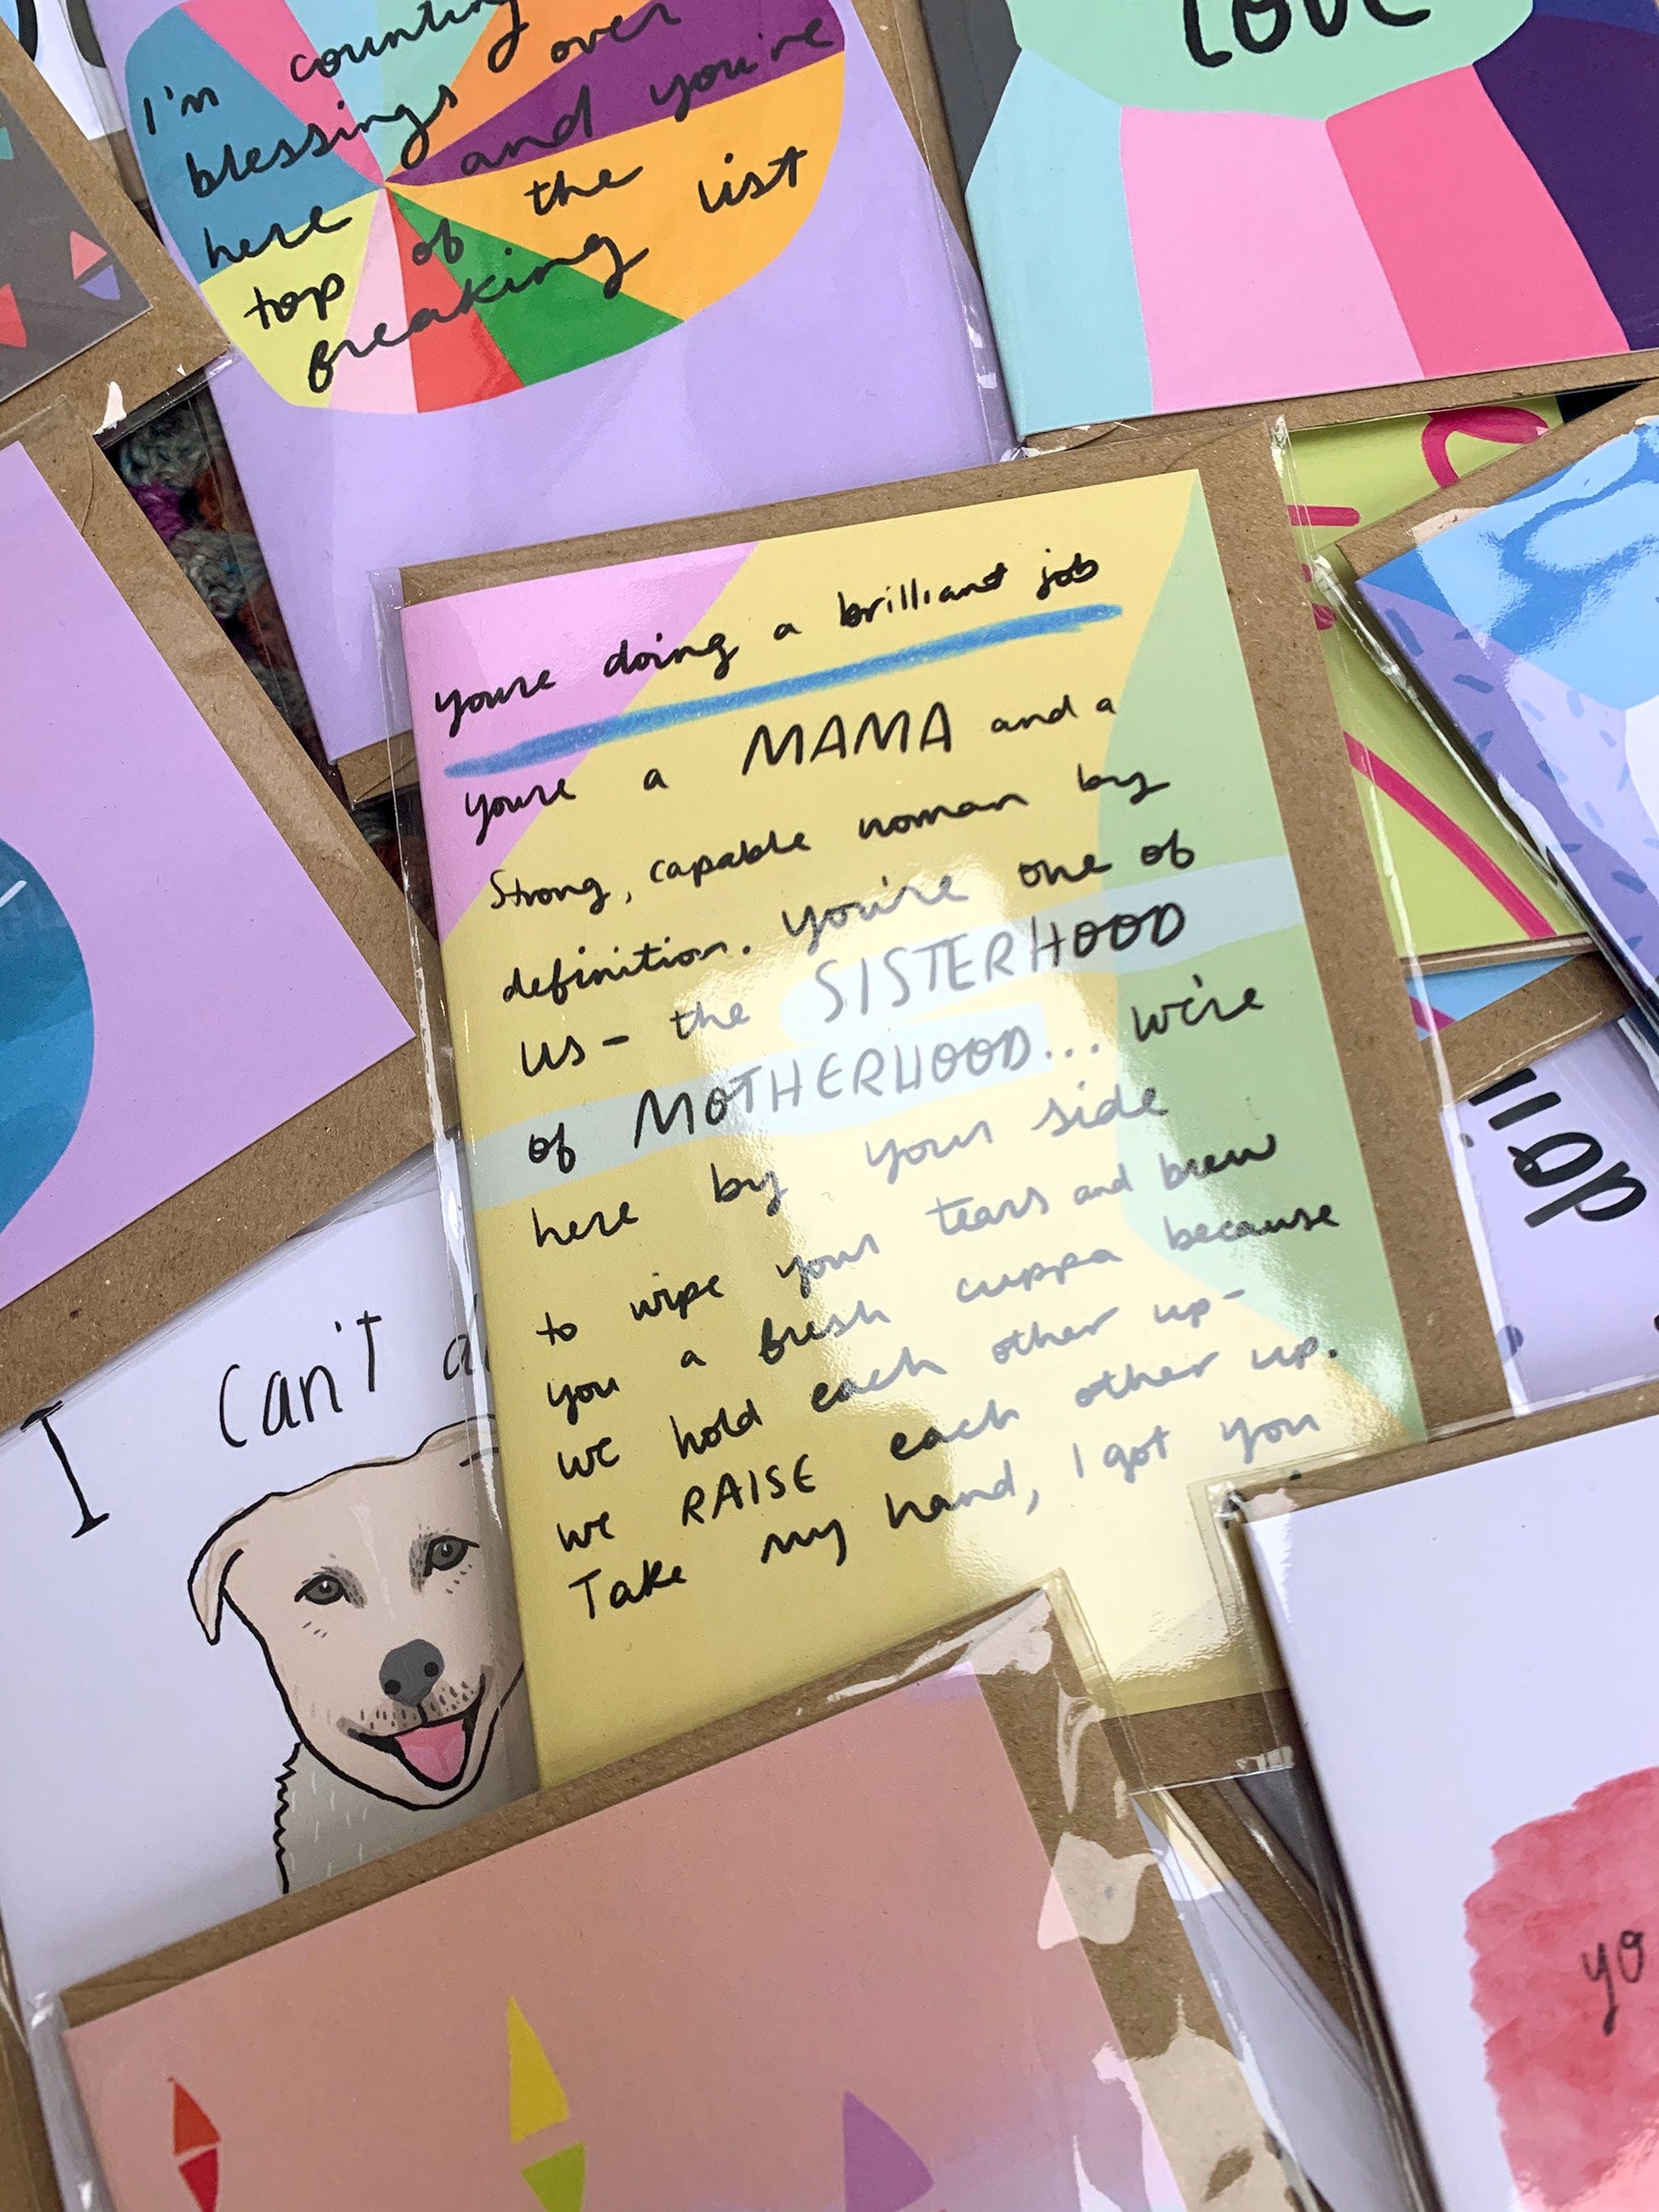 I'm counting
blessings over
here and you're
top of the
freaking list
LOVE
youre doing a brilliant job
youre a MAMA and a
Strong, capable woman by
definition. You're one of
us - the SISTERHOOD
of MOTHERHOOD... we're
here by your side
to wipe your tears and brew
you a fresh cuppa because
we hold each other up -
we RAISE each other up.
Take my hand, I got you
I can't
yo